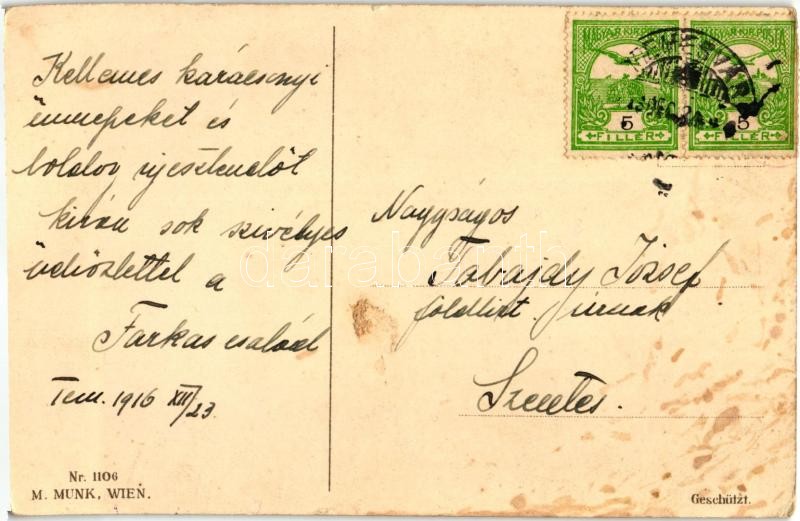 Kellemes karácsonyi
ünnepeket és
boldog ujesztendőt
kiván sok szivélyes
üdvözlettel a
Farkas család
Tem. 1916 XII/23.
Nr. 1106
M. MUNK, WIEN.
MAGYAR KIR. POSTA
5
FILLÉR
MAGYAR KIR. POSTA
5
FILLÉR
TEMESVÁR
Nagyságos
Tabajdy József
földbirt. úrnak
Szentes.
Geschützt.
darabanth